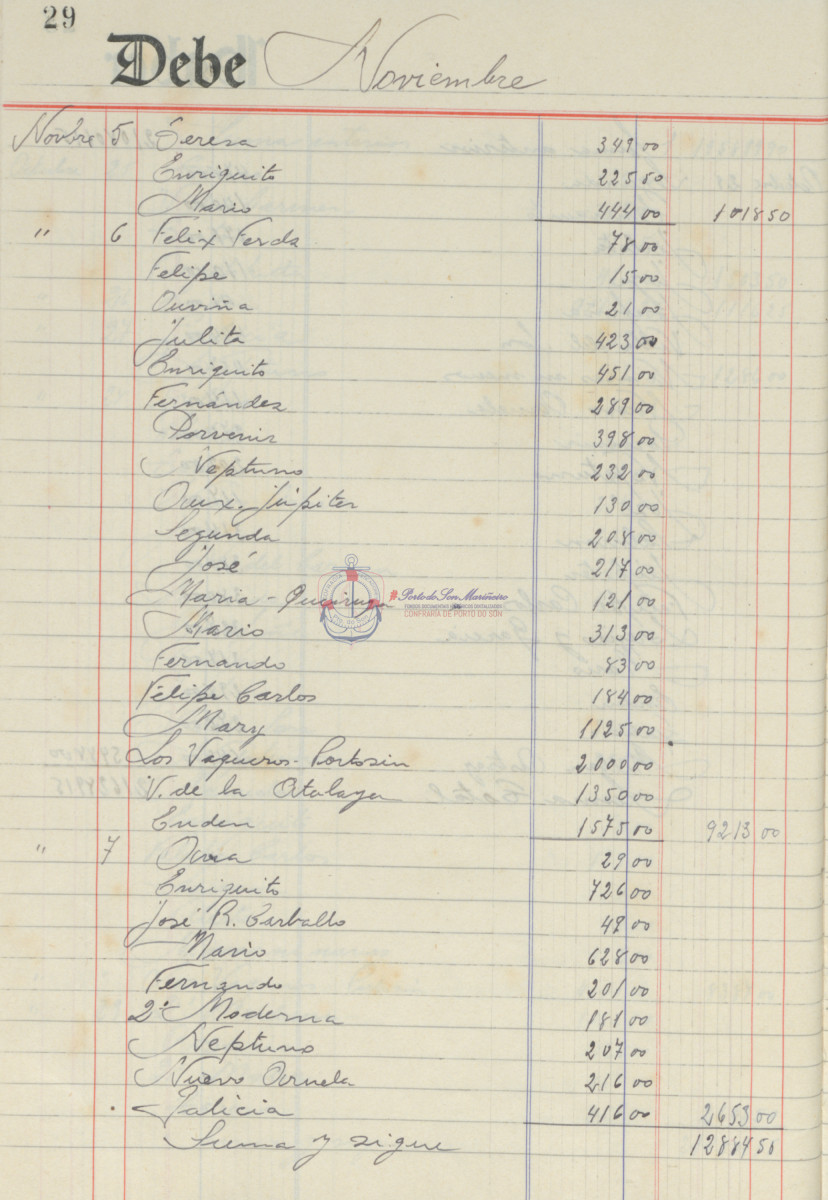 29
Debe Noviembre
Novbre 5 Teresa 349 00
Enriquito 225 50
Mario 444 00 1018 50
" 6 Felix Ferda 78 00
Felipe 15 00
Ouviña 21 00
Julita 423 00
Enriquito 451 00
Fernández 289 00
Porvenir 398 00
Neptuno 232 00
Aux. Júpiter 130 00
Segunda 208 00
José 217 00
Maria - Queiruga 121 00
Mario 313 00
Fernando 83 00
Felipe Carlos 184 00
Mary 1125 00
Los Vaqueros - Portosin 2000 00
V. de la Atalaya 1350 00
Enden 1575 00 9213 00
" 7 29 00
Enriquito 726 00
José R. Carballo 49 00
Mario 628 00
Fernando 201 00
2ª Moderna 181 00
Neptuno 207 00
Nuevo 216 00
Galicia 416 00 2653 00
Suma y sigue 12884 50
#Porto do Son Mariñeiro
CONFRARIA DE PORTO DO SON